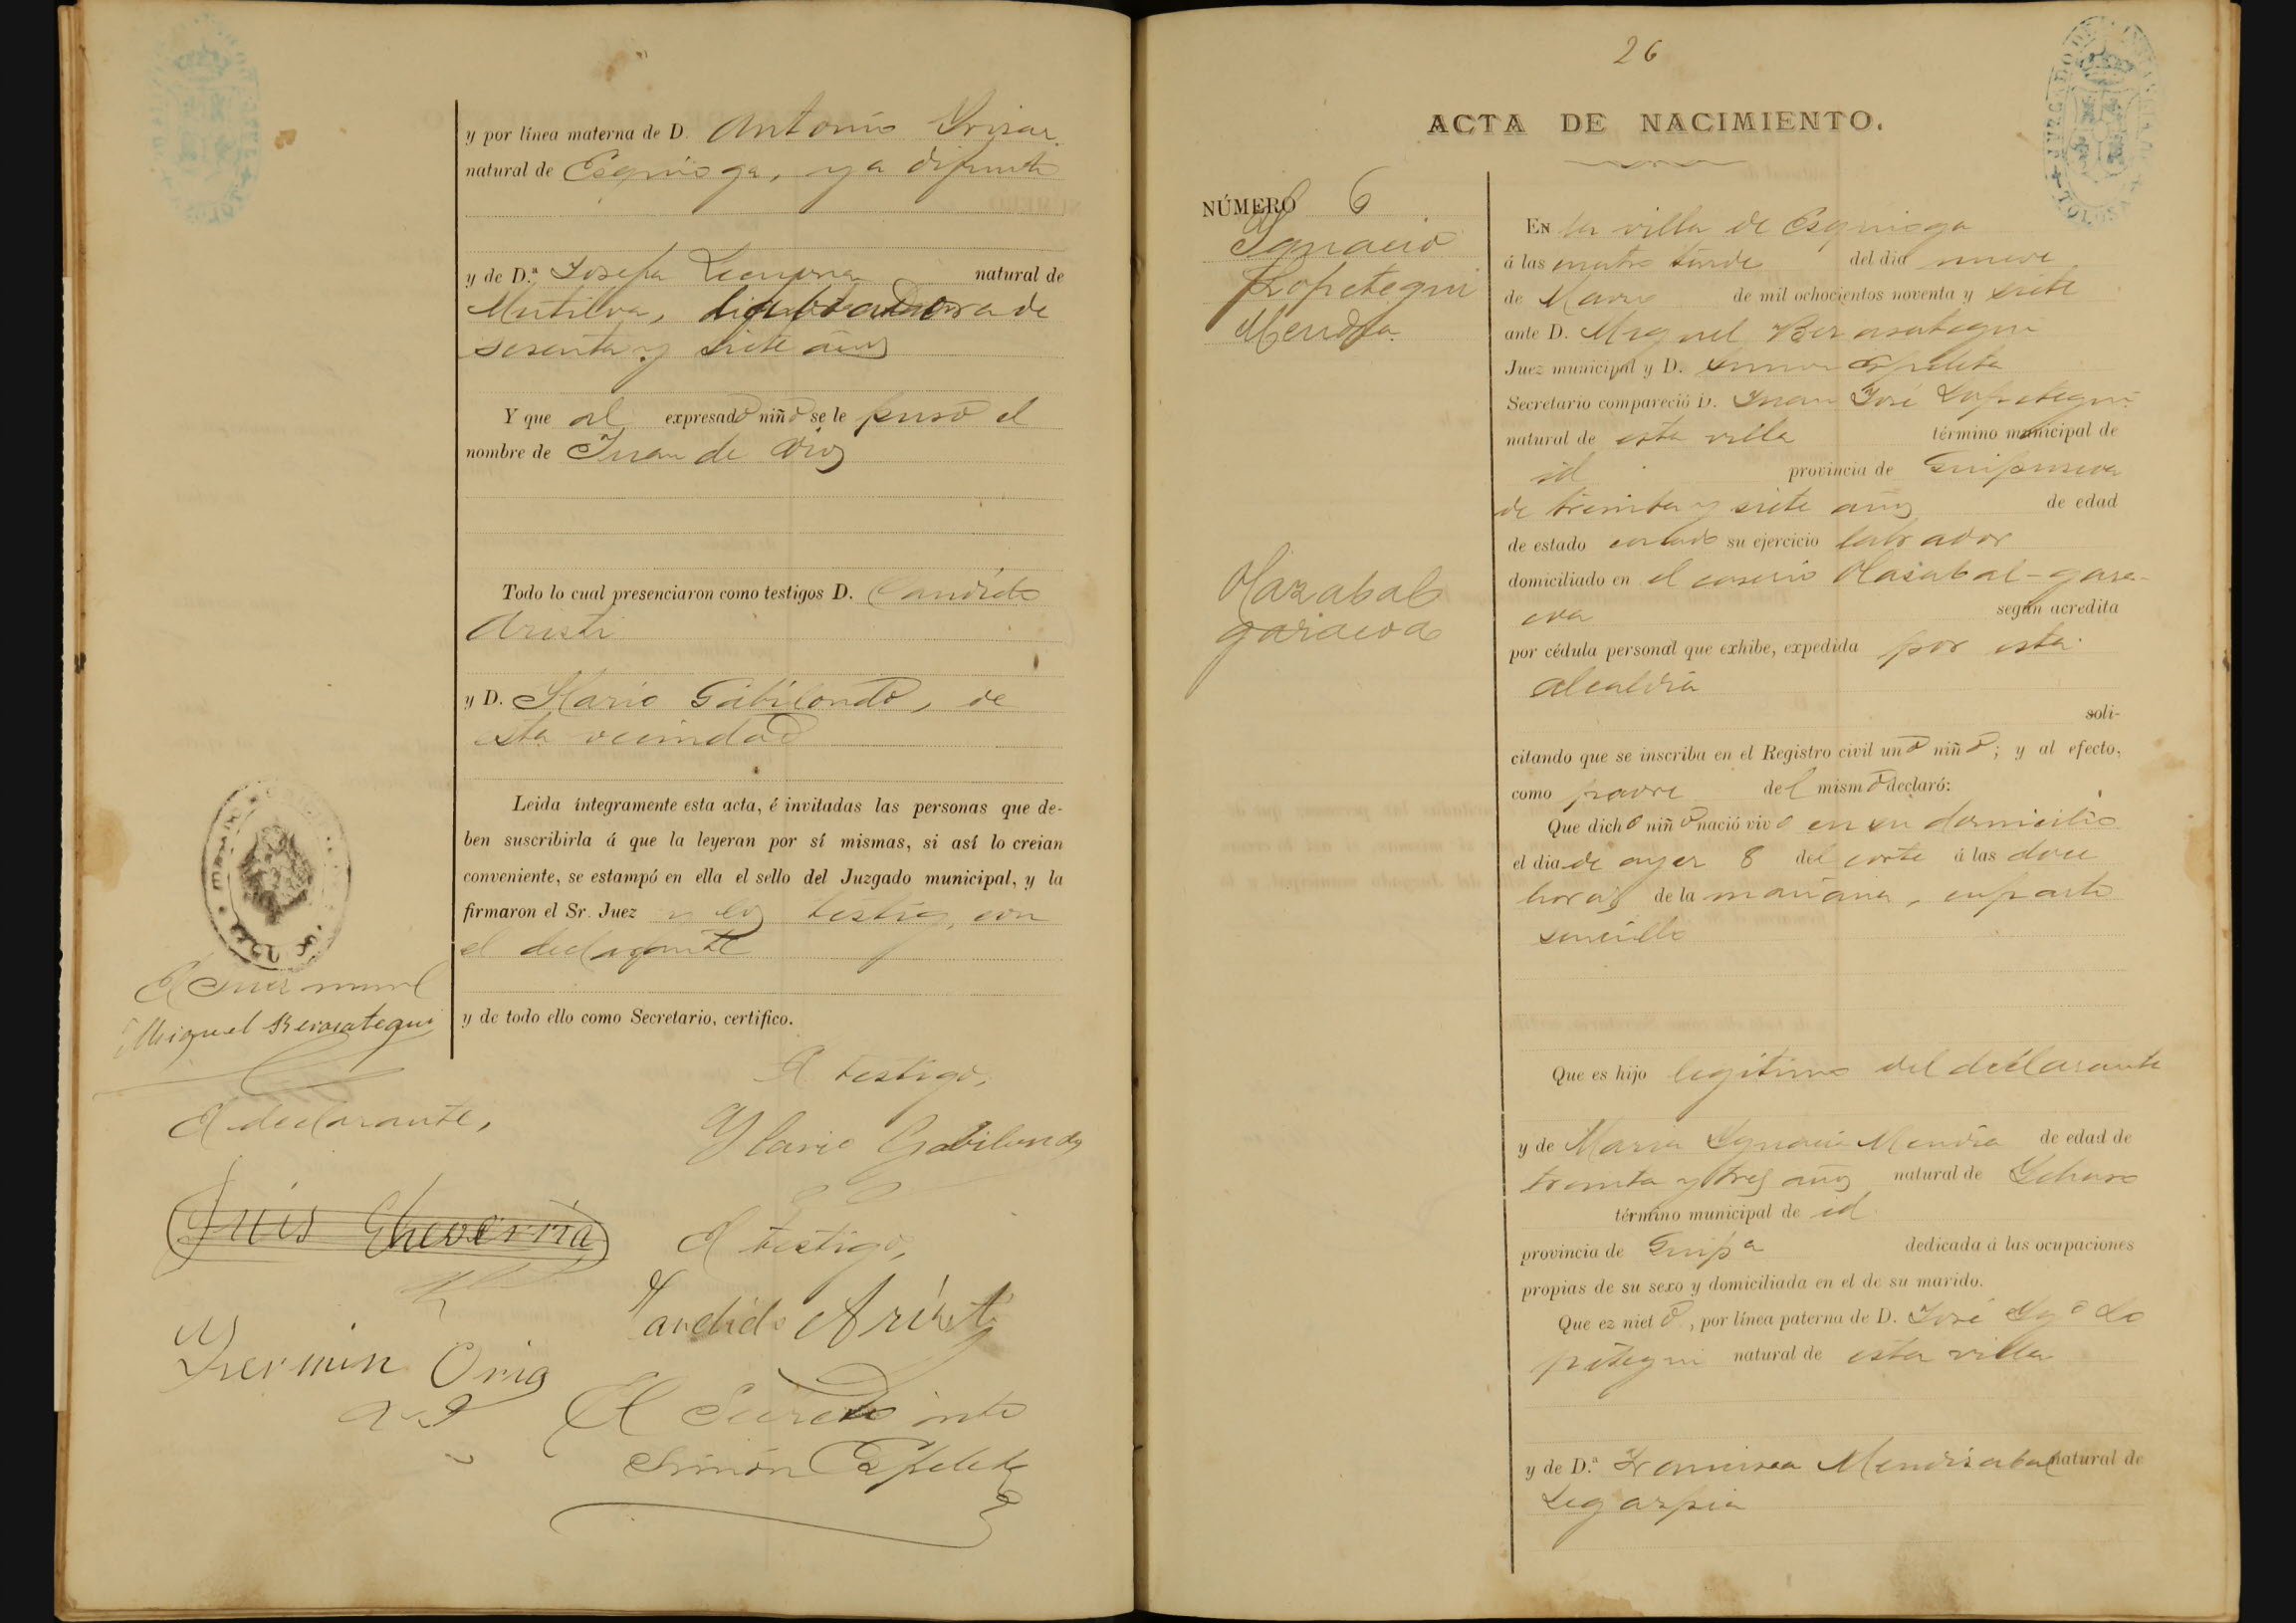 y por línea materna de D. Antonio Yrizar
natural de Esquioga, ya difunto
y de D.ª Josefa Lecuona natural de
Mutiloa, labradora de
sesenta y siete años
Y que al expresado niño se le puso el
nombre de Juan de Dios
Todo lo cual presenciaron como testigos D. Candido
Aristi
y D. Ylario Gabilondo, de
esta vecindad
Leida íntegramente esta acta, é invitadas las personas que de-
ben suscribirla á que la leyeran por sí mismas, si así lo creian
conveniente, se estampó en ella el sello del Juzgado municipal, y la
firmaron el Sr. Juez y los testigos, con
el declarante
y de todo ello como Secretario, certifico.
El Juez munl
Miguel Berasategui
El declarante,
El testigo,
Ylario Gabilondo
Luis Echeverria
El testigo,
Candido Aristi
Fermin Oria
El Secreto into
Simón Ezpeleta
26
ACTA DE NACIMIENTO.
JUZGADO DE INSTANCIA TOLOSA
NÚMERO 6
Ygnacio
Lopetegui
Mendia
Olazabal
garaicoa
EN la villa de Esquioga
á las cuatro tarde del dia nueve
de Marzo de mil ochocientos noventa y siete
ante D. Miguel Berasategui
Juez municipal y D. Simon Ezpeleta
Secretario compareció D. Juan José Lopetegui
natural de esta villa término municipal de
id provincia de Guipuzcoa
de treinta y siete años de edad
de estado casado su ejercicio labrador
domiciliado en el caserio Olasabal-garai-
coa según acredita
por cédula personal que exhibe, expedida por esta
alcaldia
soli-
citando que se inscriba en el Registro civil uno niño; y al efecto,
como padre del mismo declaró:
Que dicho niño nació vivo en su domicilio
el dia de ayer 8 del corte á las doce
horas de la mañana, en parto
sencillo
Que es hijo legitimo del declarante
y de Maria Ygnacia Mendia de edad de
treinta y tres años natural de Ychaso
término municipal de id
provincia de Guipª dedicada á las ocupaciones
propias de su sexo y domiciliada en el de su marido.
Que ez nieto, por línea paterna de D. José Ygº Lo
petegui natural de esta villa
y de D.ª Francisca Mendizabal natural de
Legazpia